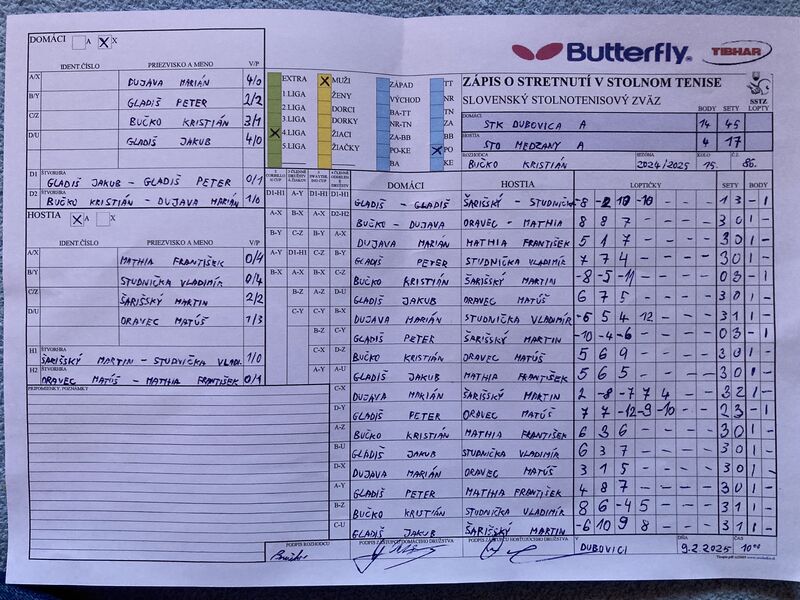 DOMÁCI A X
IDENT.ČÍSLO PRIEZVISKO A MENO V/P
A/X DUJAVA MARIÁN 4/0
B/Y GLADIŠ PETER 2/2
C/Z BUČKO KRISTIÁN 3/1
D/U GLADIŠ JAKUB 4/0
D1 ŠTVORHRA
GLADIŠ JAKUB - GLADIŠ PETER 0/1
D2 ŠTVORHRA
BUČKO KRISTIÁN - DUJAVA MARIÁN 1/0
HOSTIA A X
IDENT.ČÍSLO PRIEZVISKO A MENO V/P
A/X MATHIA FRANTIŠEK 0/4
B/Y STUDNIČKA VLADIMÍR 0/4
C/Z ŠARIŠSKÝ MARTIN 2/2
D/U ORAVEC MATÚŠ 1/3
H1 ŠTVORHRA
ŠARIŠSKÝ MARTIN - STUDNIČKA VLADI. 1/0
H2 ŠTVORHRA
ORAVEC MATÚŠ - MATHIA FRANTIŠEK 0/1
PRIPOMIENKY, POZNÁMKY
EXTRA
1.LIGA
2.LIGA
3.LIGA
4.LIGA
5.LIGA
MUŽI
ŽENY
DORCI
DORKY
ŽIACI
ŽIAČKY
ZÁPAD
VÝCHOD
BA-TT
NR-TN
ZA-BB
PO-KE
BA
TT
NR
TN
ZA
BB
PO
KE
Butterfly TIBHAR
ZÁPIS O STRETNUTÍ V STOLNOM TENISE
SLOVENSKÝ STOLNOTENISOVÝ ZVÄZ
SSTZ
BODY SETY LOPTY
DOMÁCI
STK DUBOVICA A 14 45
HOSTIA
STO MEDZANY A 4 17
ROZHODCA SEZÓNA KOLO Č.S.
BUČKO KRISTIÁN 2024/2025 15. 86.
DOMÁCI HOSTIA LOPTIČKY SETY BODY
GLADIŠ - GLADIŠ ŠARIŠSKÝ - STUDNIČKA -8 -2 10 -10 - - - 1 3 - 1
BUČKO - DUJAVA ORAVEC - MATHIA 8 8 7 - - - - 3 0 1 -
A-X DUJAVA MARIÁN MATHIA FRANTIŠEK 5 1 7 - - - - 3 0 1 -
B-Y GLADIŠ PETER STUDNIČKA VLADIMÍR 7 7 4 - - - - 3 0 1 -
C-Z BUČKO KRISTIÁN ŠARIŠSKÝ MARTIN -8 -5 -11 - - - - 0 3 - 1
D-U GLADIŠ JAKUB ORAVEC MATÚŠ 6 7 5 - - - - 3 0 1 -
B-X DUJAVA MARIÁN STUDNIČKA VLADIMÍR -6 5 4 12 - - - 3 1 1 -
GLADIŠ PETER ŠARIŠSKÝ MARTIN -10 -4 -6 - - - - 0 3 - 1
BUČKO KRISTIÁN ORAVEC MATÚŠ 5 6 9 - - - - 3 0 1 -
A-U GLADIŠ JAKUB MATHIA FRANTIŠEK 5 6 5 - - - - 3 0 1 -
C-X DUJAVA MARIÁN ŠARIŠSKÝ MARTIN 2 -8 -7 7 4 - - 3 2 1 -
D-Y GLADIŠ PETER ORAVEC MATÚŠ 7 7 -12 -9 -10 - - 2 3 - 1
A-Z BUČKO KRISTIÁN MATHIA FRANTIŠEK 6 3 6 - - - - 3 0 1 -
B-U GLADIŠ JAKUB STUDNIČKA VLADIMÍR 6 3 7 - - - - 3 0 1 -
D-X DUJAVA MARIÁN ORAVEC MATÚŠ 3 1 5 - - - - 3 0 1 -
A-Y GLADIŠ PETER MATHIA FRANTIŠEK 4 8 7 - - - - 3 0 1 -
B-Z BUČKO KRISTIÁN STUDNIČKA VLADIMÍR 8 6 -4 5 - - - 3 1 1 -
C-U GLADIŠ JAKUB ŠARIŠSKÝ MARTIN -6 10 9 8 - - - 3 1 1 -
PODPIS ROZHODCU PODPIS ZÁSTUPCU DOMÁCEHO DRUŽSTVA PODPIS ZÁSTUPCU HOSŤUJÚCEHO DRUŽSTVA V DŇA ČAS
Bučko DUBOVICI 9.2.2025 10⁰⁰